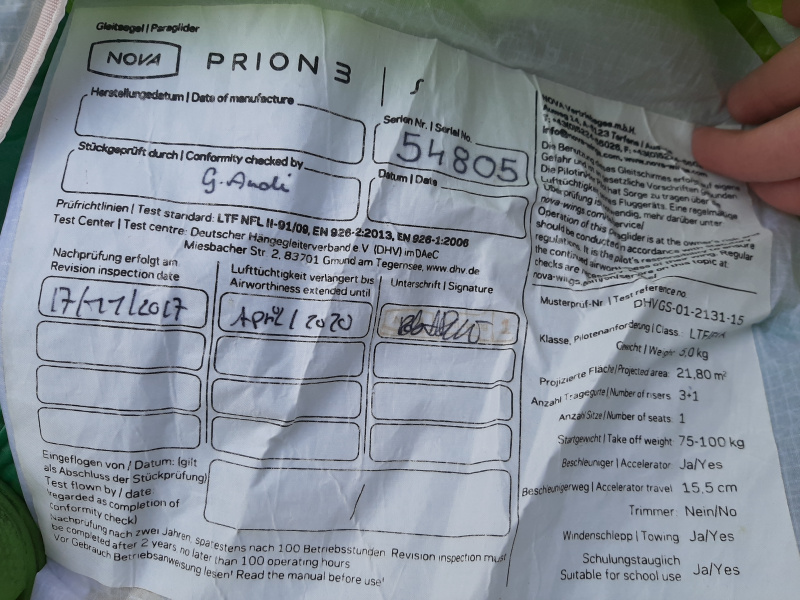 Gleitsegel | Paraglider
NOVA PRION 3 | S
Herstellungsdatum | Date of manufacture
Serien Nr. | Serial No.
54805
Stückgeprüft durch | Conformity checked by
G. Andi
Datum | Date
Prüfrichtlinien | Test standard: LTF NFL II-91/09, EN 926-2:2013, EN 926-1:2006
Test Center | Test centre: Deutscher Hängegleiterverband e.V. (DHV) im DAeC
Miesbacher Str. 2, 83701 Gmund am Tegernsee, www.dhv.de
Nachprüfung erfolgt am
Revision inspection date
Lufttüchtigkeit verlängert bis
Airworthiness extended until
Unterschrift | Signature
17/11/2017
April/2020
Eingeflogen von / Datum: (gilt
als Abschluss der Stückprüfung)
Test flown by / date
(regarded as completion of
conformity check)
/
Nachprüfung nach zwei Jahren, spätestens nach 100 Betriebsstunden. Revision inspection must
be completed after 2 years, no later than 100 operating hours
Vor Gebrauch Betriebsanweisung lesen! Read the manual before use!
NOVA Vertriebsges.m.b.H.
Die Benutzung des Gleitschirmes erfolgt auf eigene
nova-wings.com/service
Operation of this paraglider is at the owner's
should be conducted in accordance
regulations. It is the pilot's
the continued airworthiness
checks are
nova-wings
Musterprüf-Nr. | Test reference no
DHVGS-01-2131-15
Klasse, Pilotenanforderung | Class: LTF
Gewicht | Weight 5,0 kg
Projizierte Fläche | Projected area: 21,80 m²
Anzahl Tragegurte | Number of risers 3+1
Anzahl Sitze | Number of seats 1
Startgewicht | Take off weight 75-100 kg
Beschleuniger | Accelerator Ja/Yes
Beschleunigerweg | Accelerator travel 15,5 cm
Trimmer Nein/No
Windenschlepp | Towing Ja/Yes
Schulungstauglich
Suitable for school use Ja/Yes